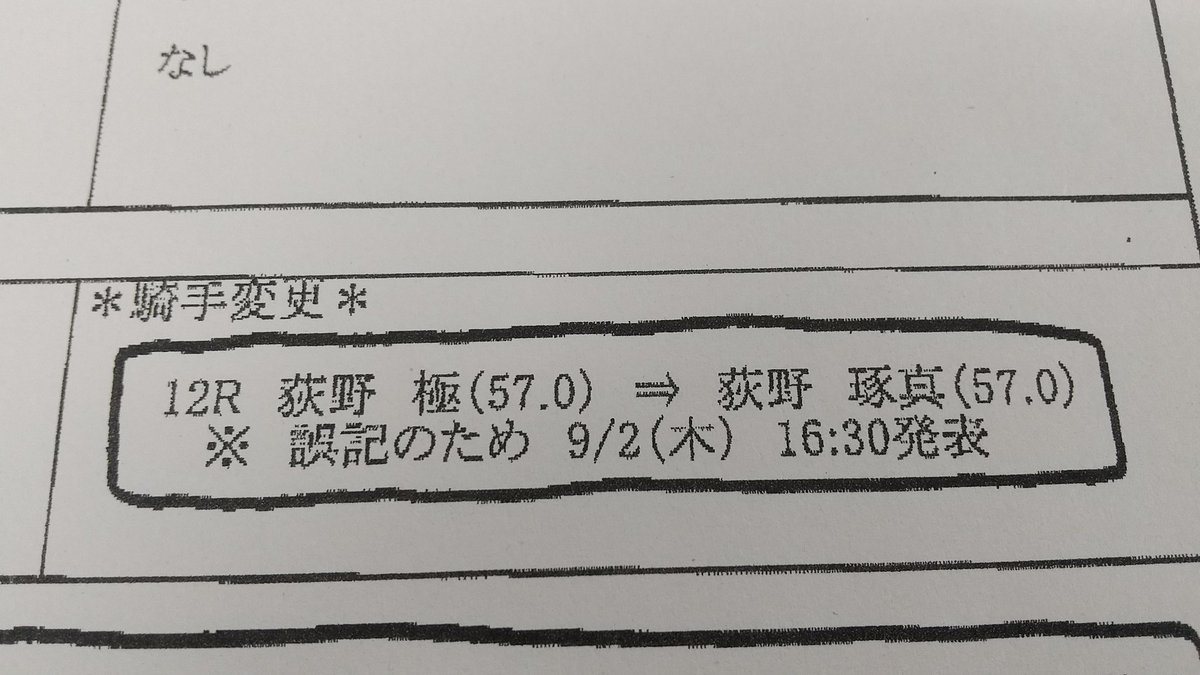 なし
＊騎手変更＊
12R 荻野 極(57.0) ⇒ 荻野 琢真(57.0)
※ 誤記のため 9/2(木) 16:30発表